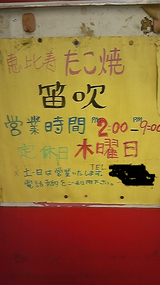 恵比寿 たこ焼
笛吹
営業時間 PM2:00-PM9:00
定休日 木曜日
※土・日は営業いたします。
TEL
電話予約をご利用下さい。